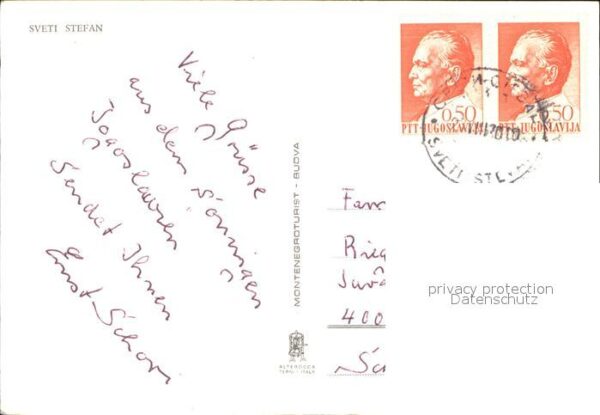 SVETI STEFAN
Viele Grüsse
aus dem sonnigen
Jogoslawien
Sendet Ihnen
Ernst
MONTENEGROTURIST - BUDVA
ALTEROCCA
TERNI - ITALY
0.50
PTT-JUGOSLAVIJA
0.50
PTT-JUGOSLAVIJA
SVETI STEFAN
Fam
400
privacy protection
Datenschutz